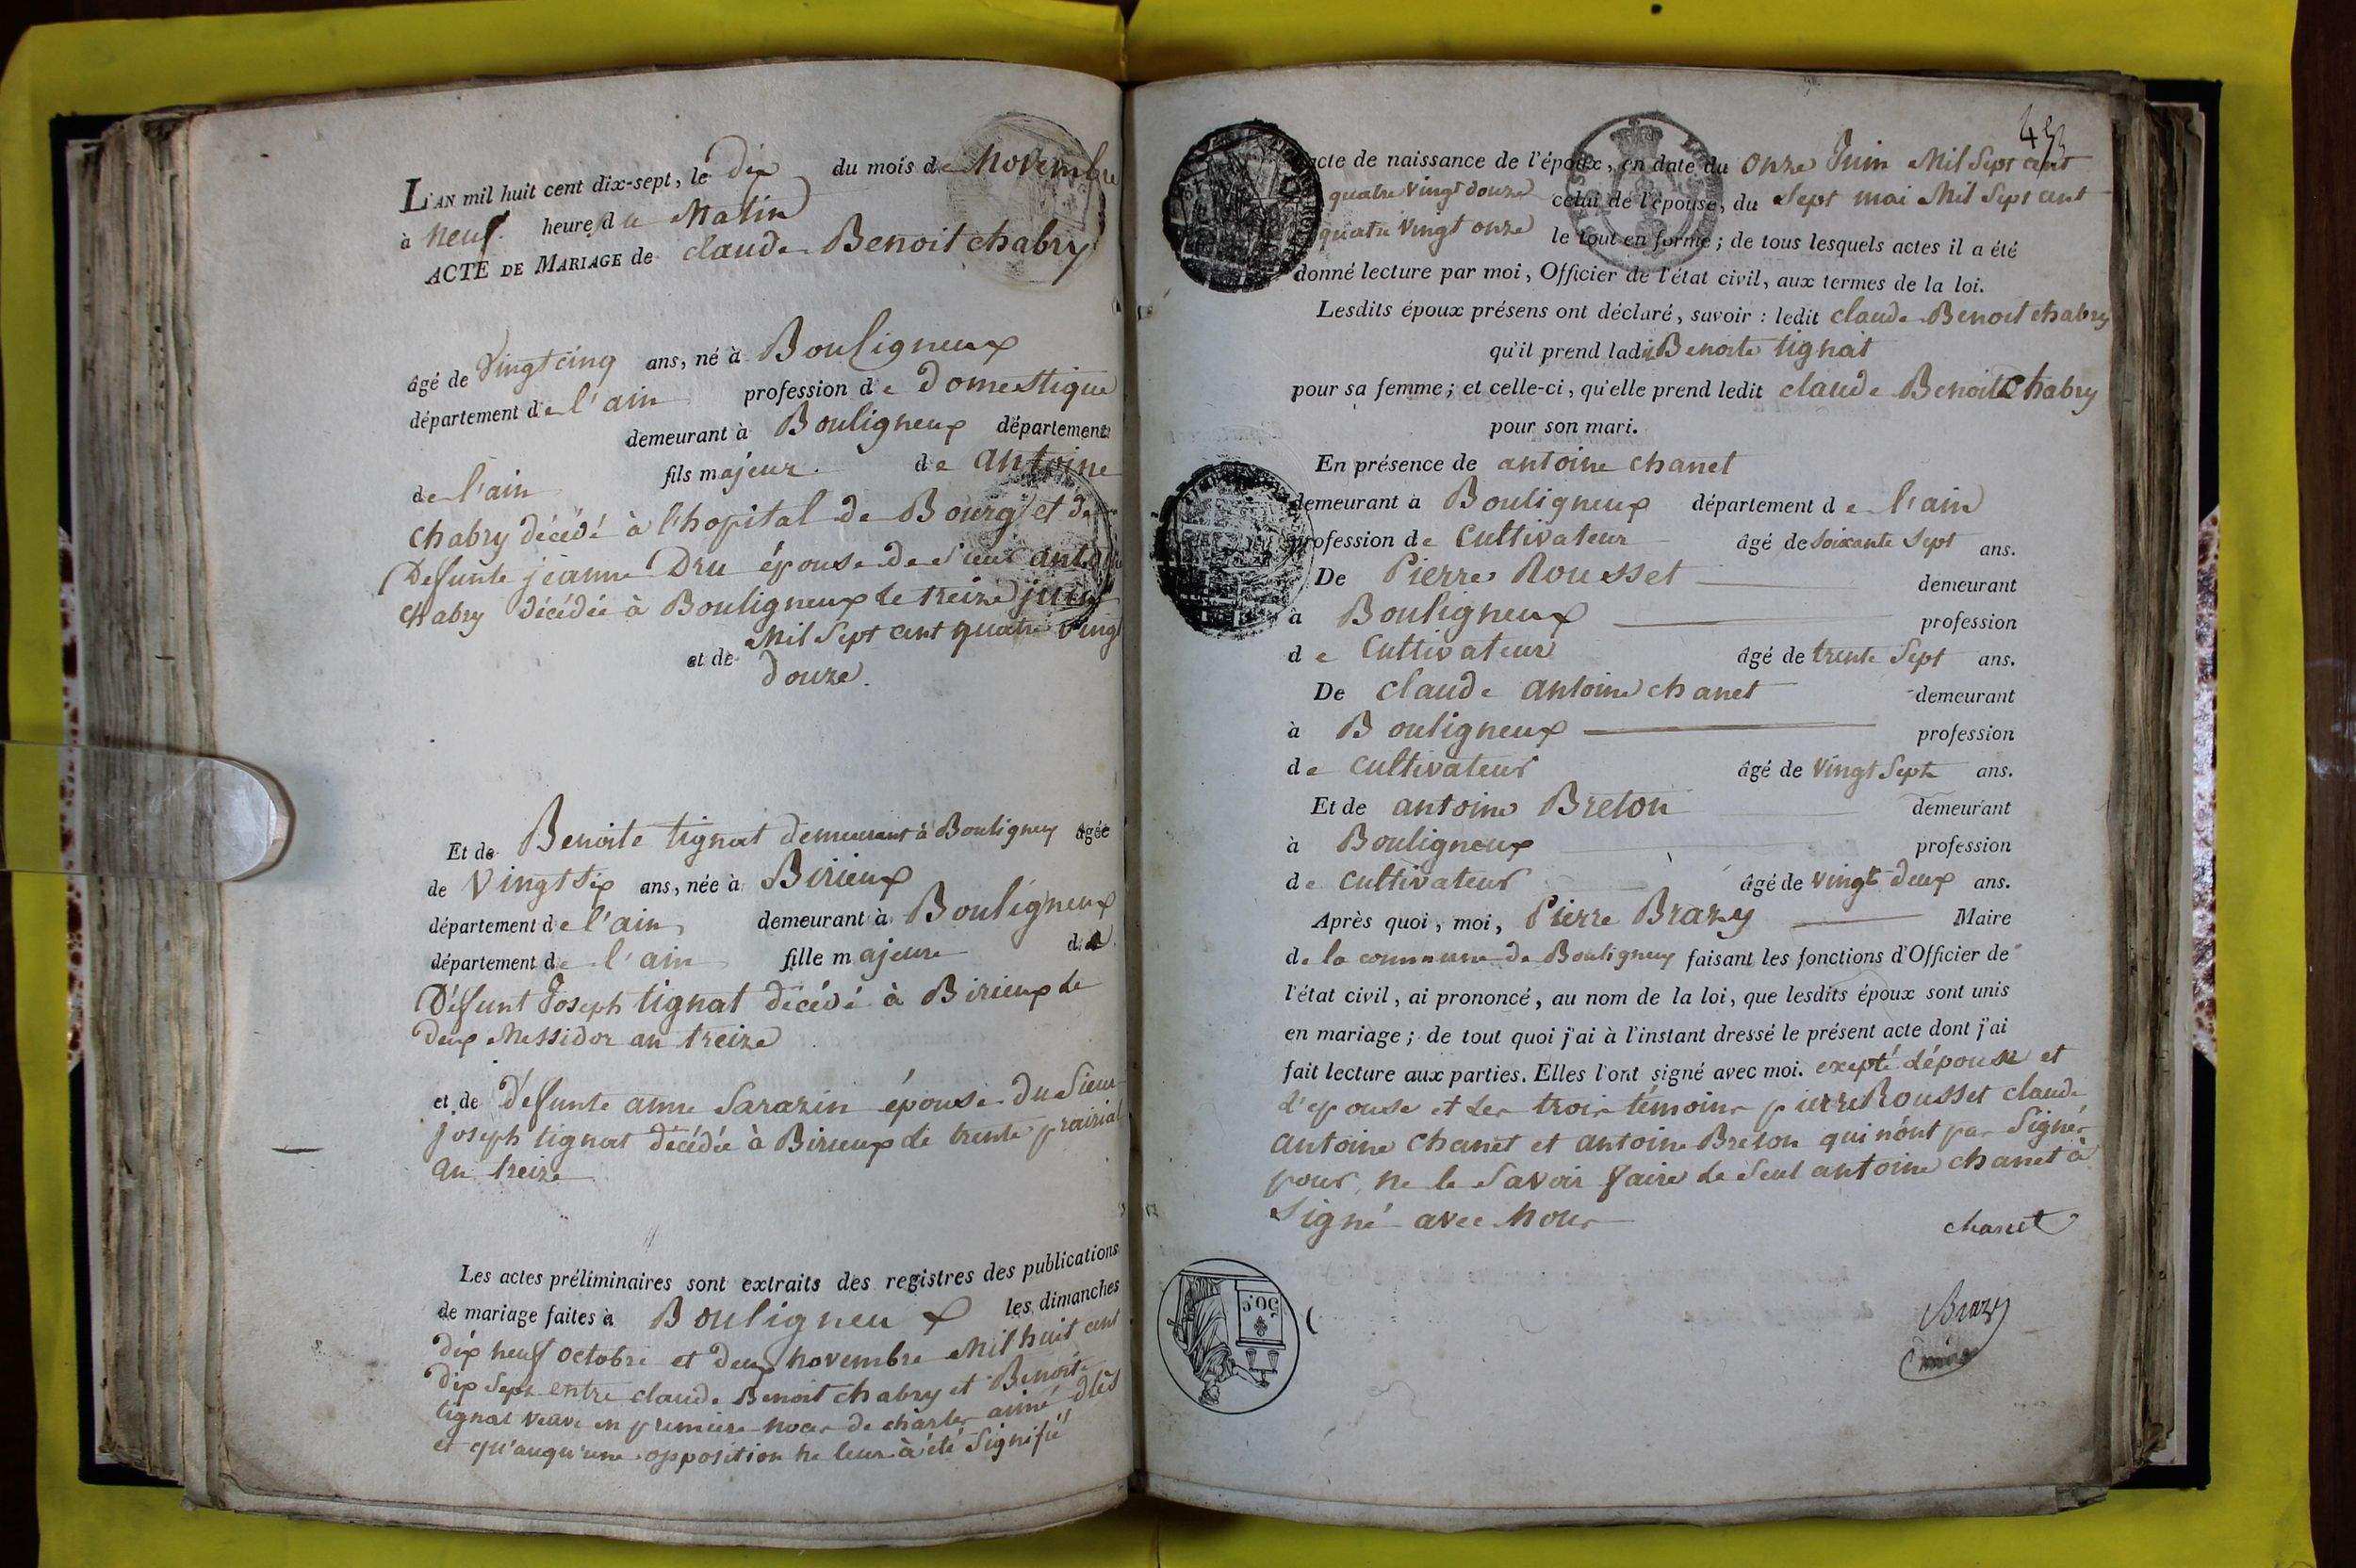 L'AN mil huit cent dix-sept, le dix du mois de Novembre
à neuf heure du Matin
ACTE DE MARIAGE de claude Benoit chabry
âgé de vingt cinq ans, né à Bouligneux
département de l'ain profession de Domestique
demeurant à Bouligneux département
de l'ain fils majeur de antoine
chabry décédé à l'hopital de Bourg et de
Defunte jeanne Dru épouse de Sieur antoine
chabry décédée à Bouligneux le treize juin
Mil Sept cent quatre vingt
et de douze.
Et de Benoite tignat demeurant à Bouligneux âgée
de vingt six ans, née à Birieux
département de l'ain demeurant à Bouligneux
département de l'ain fille majeure de
Défunt Joseph tignat décédé à Birieux le
deux Messidor an treize
et de défunte anne Sarazin épouse du Sieur
joseph tignat décédée à Birieux le trente prairial
an treize
Les actes préliminaires sont extraits des registres des publications
de mariage faites à Bouligneux les dimanches
dix neuf octobre et deux novembre Mil huit cent
dix Sept entre claude Benoit chabry et Benoite
tignat veuve en premiere noces de charles aimé
et qu'auqu'une opposition ne leur à été Signifié
acte de naissance de l'époux, en date du onze Juin Mil Sept cent
quatre vingt douze celui de l'épouse, du Sept mai Mil Sept cent
quatre vingt onze le tout en forme; de tous lesquels actes il a été
donné lecture par moi, Officier de l'état civil, aux termes de la loi.
Lesdits époux présens ont déclaré, savoir : ledit claude Benoit chabry
qu'il prend ladite Benoite tignat
pour sa femme; et celle-ci, qu'elle prend ledit claude Benoit Chabry
pour son mari.
En présence de antoine chanet
demeurant à Bouligneux département de l'ain
profession de Cultivateur âgé de soixante Sept ans.
De Pierre Rousset demeurant
à Bouligneux profession
de Cultivateur âgé de trente Sept ans.
De claude antoine chanet demeurant
à Bouligneux profession
de cultivateur âgé de vingt Sept ans.
Et de antoine Breton demeurant
à Bouligneux profession
de cultivateur âgé de vingt deux ans.
Après quoi, moi, Pierre Brazy Maire
de la commune de Bouligneux faisant les fonctions d'Officier de
l'état civil, ai prononcé, au nom de la loi, que lesdits époux sont unis
en mariage; de tout quoi j'ai à l'instant dressé le présent acte dont j'ai
fait lecture aux parties. Elles l'ont signé avec moi. exepté l'épouse et
l'epouse et les trois témoins pierre Rousset claude
antoine chanet et antoine Breton qui n'ont pas Signés
pour ne le Savoir faire le Seul antoine chanet à
Signé avec nous
chanet
Brazy
maire
50.c